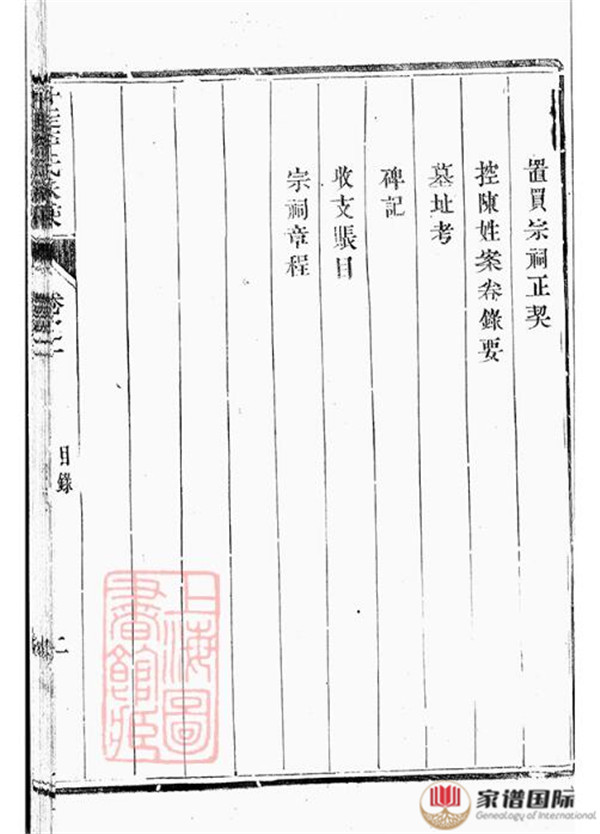 置買宗祠正契
控陳姓案卷錄要
墓址考
碑記
收支賬目
宗祠章程
目錄
二
上海圖
書館藏
家谱国际
Genealogy of International